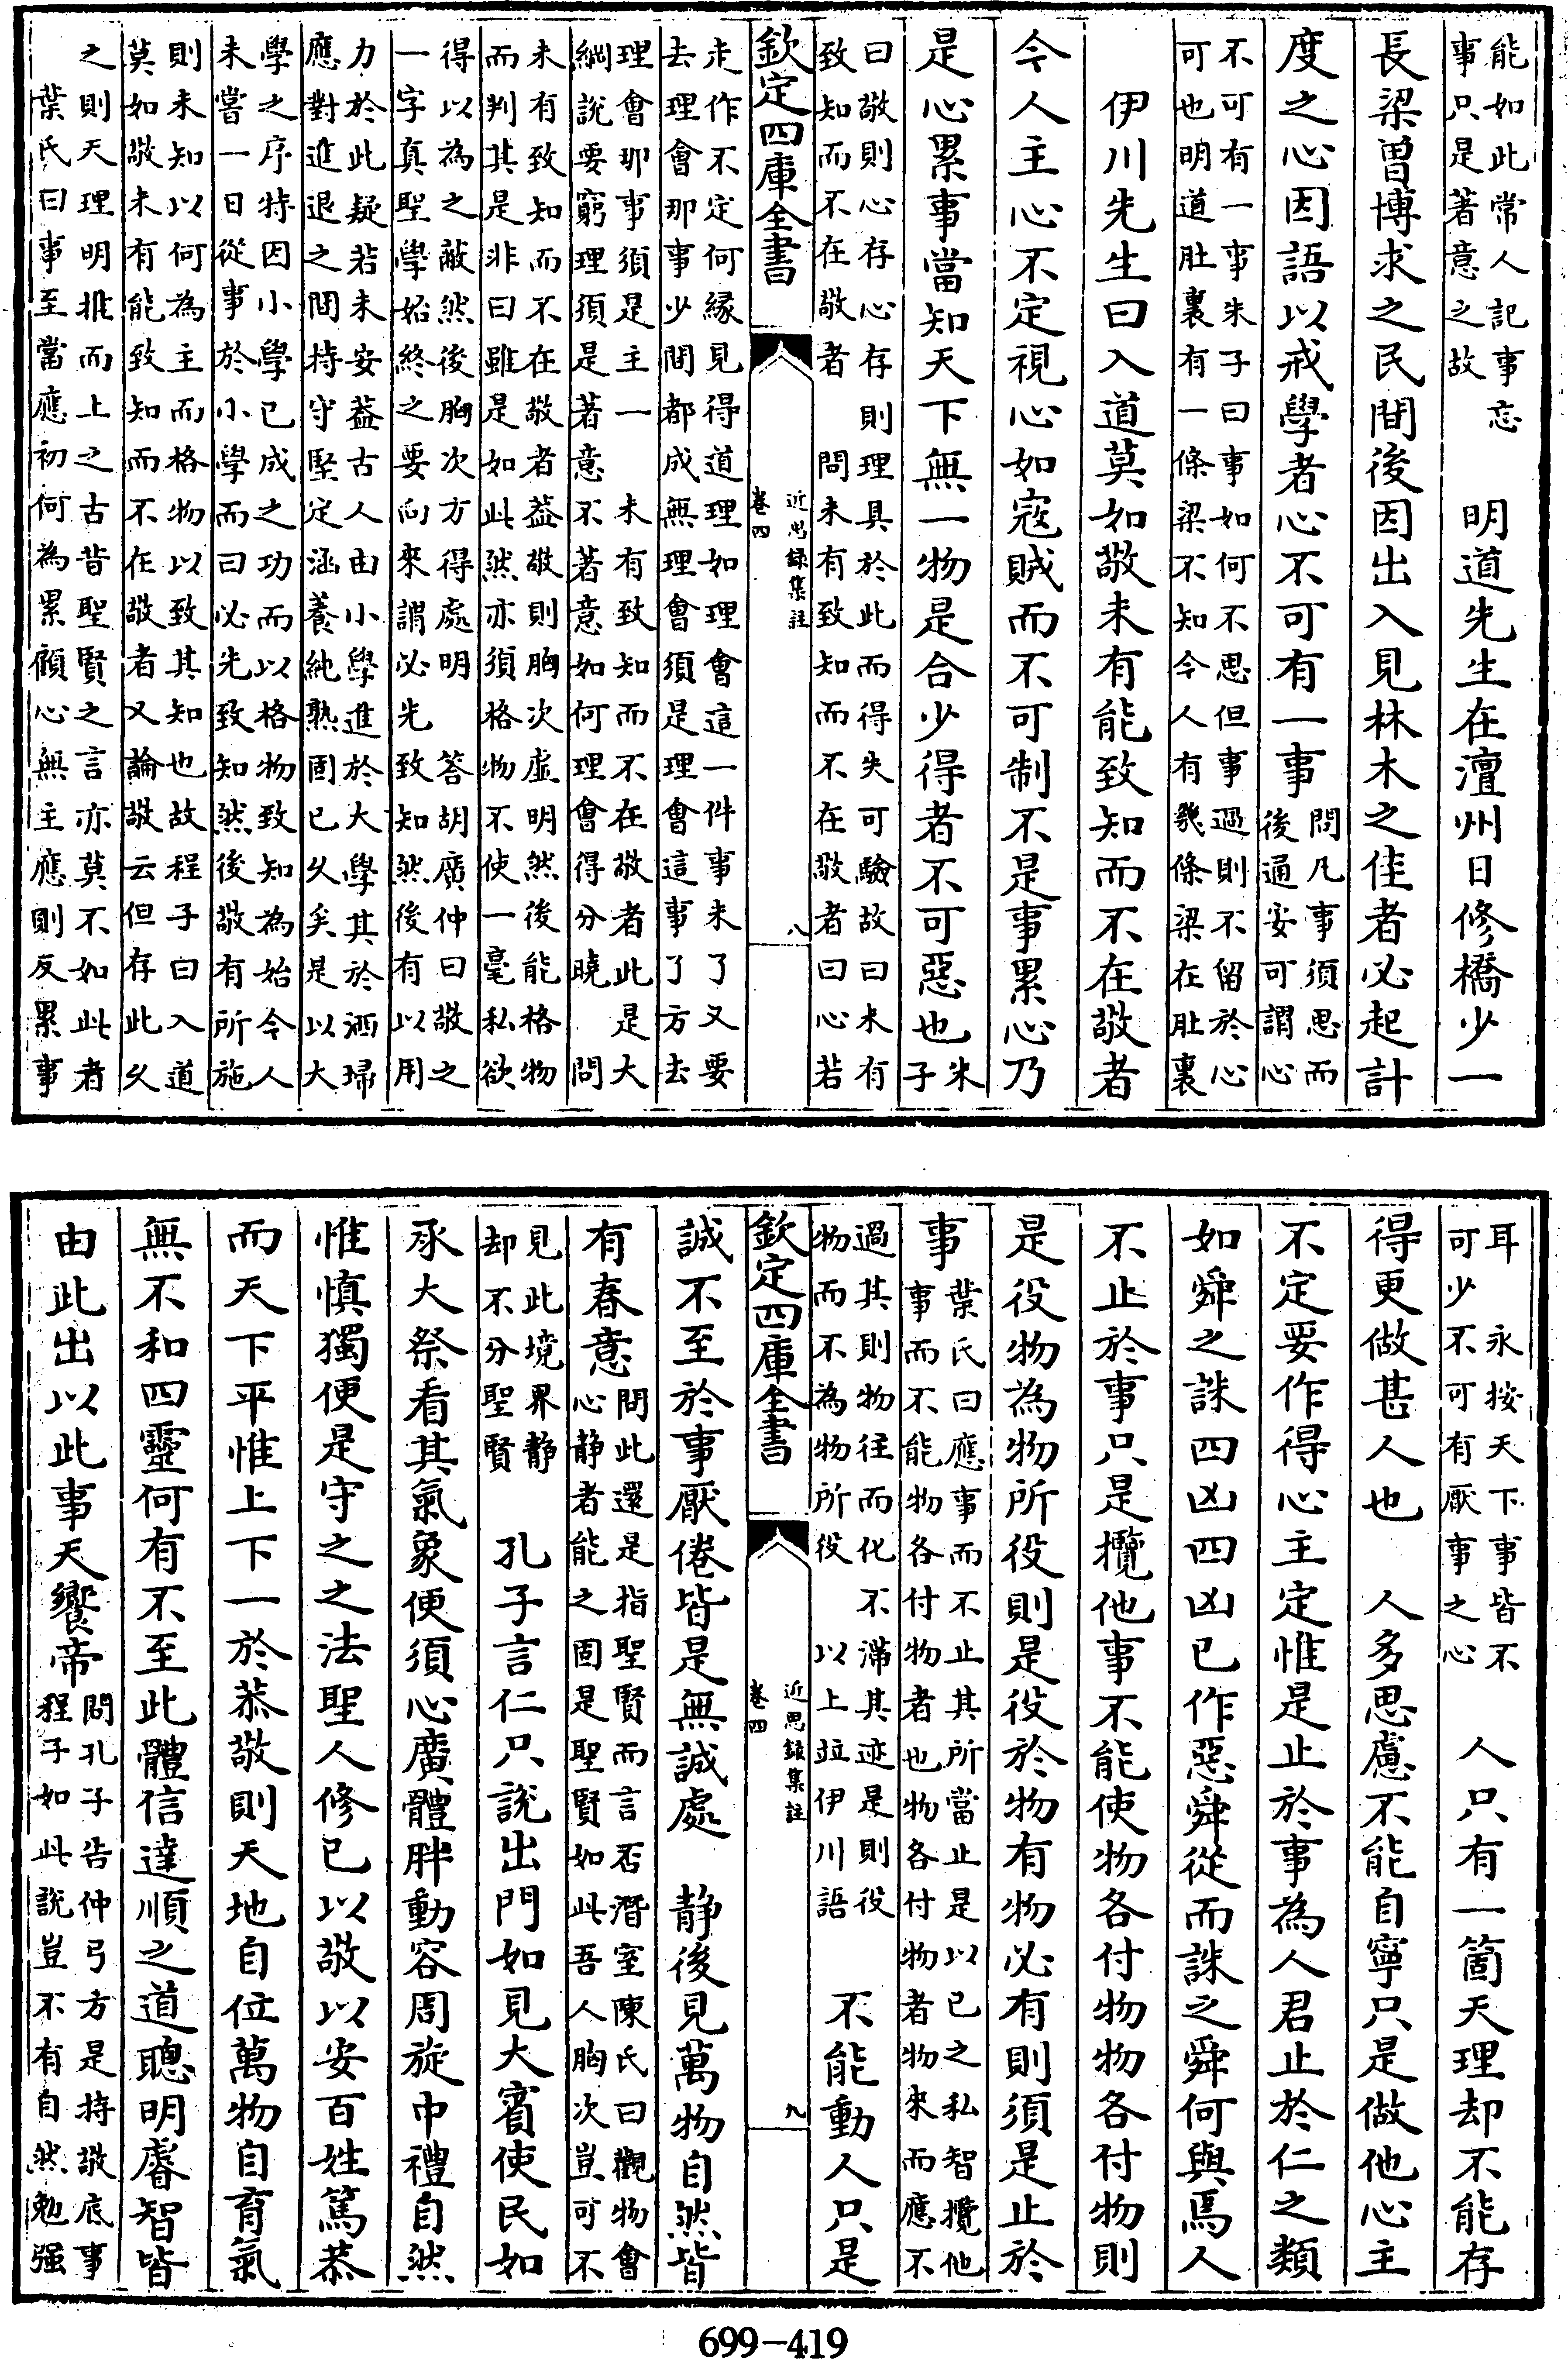 能如此常人記事忘
事只是著意之故
明道先生在澶州日修橋少一
長梁曽博求之民間後因出入見林木之佳者必起計
度之心因語以戒學者心不可有一事
問凡事須思而
後通安可謂心
不可有一事朱子曰事如何不思但事過則不留於心
可也明道肚裏有一條梁不知今人有幾條梁在肚裏
伊川先生曰入道莫如敬未有能致知而不在敬者
今人主心不定視心如寇賊而不可制不是事累心乃
是心累事當知天下無一物是合少得者不可惡也
朱
子
曰敬則心存心存則理具於此而得失可驗故曰未有
致知而不在敬者 問未有致知而不在敬者曰心若
欽定四庫全書
近思録集註
卷四
八
走作不定何縁見得道理如理會這一件事未了又要
去理會那事少間都成無理會須是理會這事了方去
理會那事須是主一 未有致知而不在敬者此是大
綱說要窮理須是著意不著意如何理會得分曉 問
未有致知而不在敬者葢敬則胸次虛明然後能格物
而判其是非曰雖是如此然亦須格物不使一毫私欲
得以為之蔽然後胸次方得處明 答胡廣仲曰敬之
一字真聖學始終之要向來謂必先致知然後有以用
力於此疑若未安葢古人由小學進於大學其於洒掃
應對進退之間持守堅定涵養純熟固已久矣是以大
學之序特因小學已成之功而以格物致知為始今人
未嘗一日從事於小學而曰必先致知然後敬有所施
則未知以何為主而格物以致其知也故程子曰入道
莫如敬未有能致知而不在敬者又論敬云但存此久
之則天理明推而上之古昔聖賢之言亦莫不如此者
葉氏曰事至當應初何為累顧心無主應則反累事
耳 永按天下事皆不
可少不可有厭事之心
人只有一箇天理却不能存
得更做甚人也 人多思慮不能自寧只是做他心主
不定要作得心主定惟是止於事為人君止於仁之類
如舜之誅四凶四凶已作惡舜從而誅之舜何與焉人
不止於事只是攬他事不能使物各付物物各付物則
是役物為物所役則是役於物有物必有則須是止於
事
葉氏曰應事而不止其所當止是以已之私智攬他
事而不能物各付物者也物各付物者物來而應不
過其則物往而化不滯其迹是則役
物而不為物所役 以上竝伊川語
不能動人只是
欽定四庫全書
近思録集註
卷四
九
誠不至於事厭倦皆是無誠處 静後見萬物自然皆
有春意
問此還是指聖賢而言否潛室陳氏曰觀物會
心静者能之固是聖賢如此吾人胸次豈可不
見此境界静
却不分聖賢
孔子言仁只說出門如見大賓使民如
承大祭看其氣象便須心廣體胖動容周旋中禮自然
惟慎獨便是守之之法聖人修已以敬以安百姓篤恭
而天下平惟上下一於恭敬則天地自位萬物自育氣
無不和四靈何有不至此體信達順之道聰明睿智皆
由此出以此事天饗帝
問孔子告仲弓方是持敬底事
程子如此說豈不有自然勉强